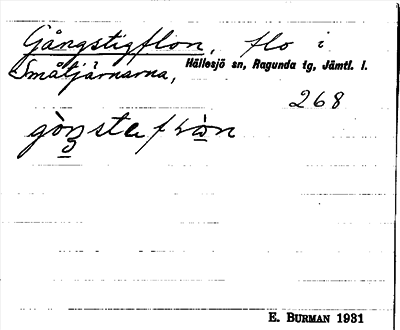 Gångstigflon, flo i
Småtjärnarna, Hällesjö sn, Ragunda tg, Jämtl. l.
268
E. BURMAN 1931